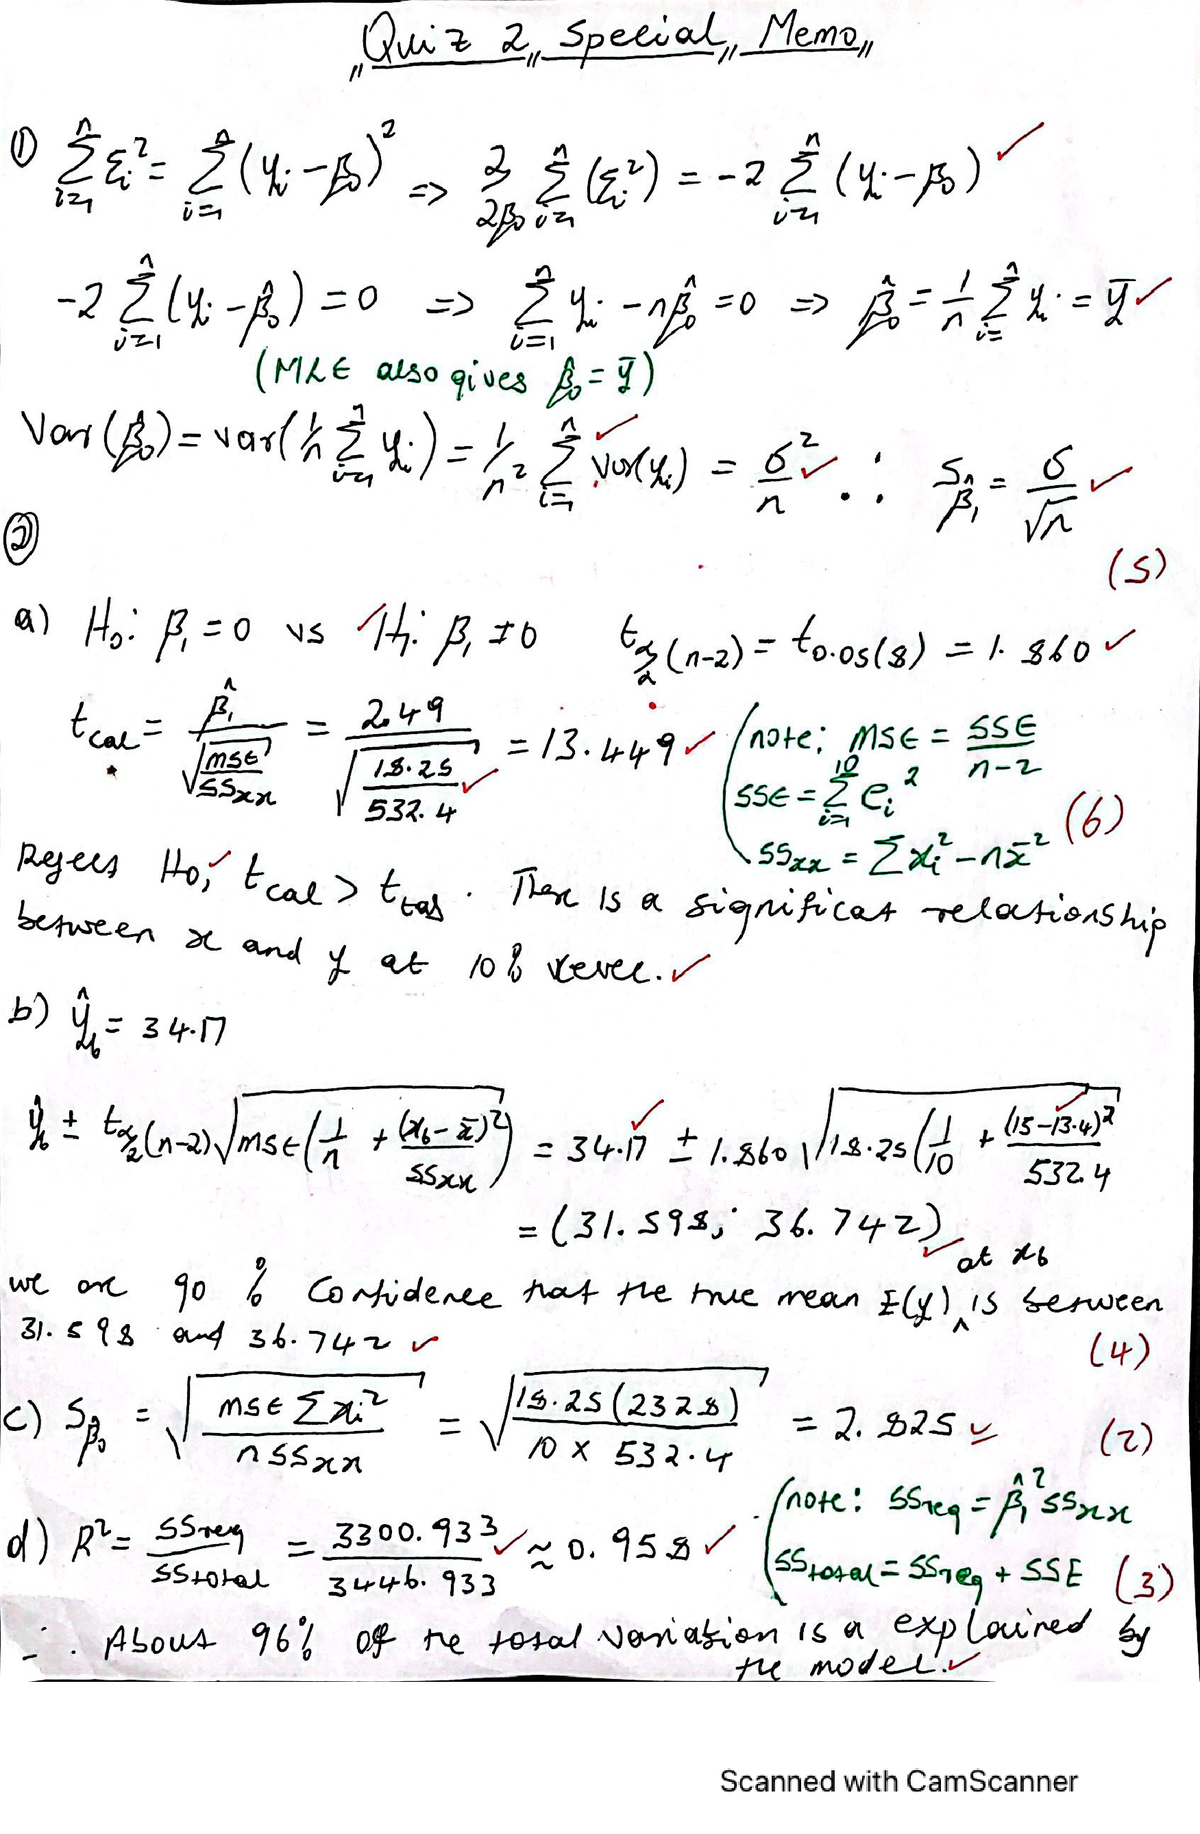 Quiz 2 Special Memo
① ∑_{i=1}^{n} ε_i² = ∑_{i=1}^{n} (y_i - β_0)² => ∂/∂β_0 ∑_{i=1}^{n} (ε_i²) = -2 ∑_{i=1}^{n} (y_i - β_0) ✓
-2 ∑_{i=1}^{n} (y_i - β̂_0) = 0 => ∑_{i=1}^{n} y_i - nβ̂_0 = 0 => β̂_0 = 1/n ∑_{i=}^{n} y_i = ȳ ✓
(MLE also gives β̂_0 = ȳ)
Var(β̂_0) = var(1/n ∑_{i=1}^{n} y_i) = 1/n² ∑_{i=1}^{n} Var(y_i) ✓ = σ²/n ✓ ∴ S_{β̂_1} = σ/√n ✓
②
(5)
a) H_0: β_1 = 0 vs ✓ H_1: β_1 ≠ 0 t_{α/2}(n-2) = t_{0.05}(8) = 1.860 ✓
t_cal = β̂_1 / √(MSE/SSxx) = 2.49 / √(18.25/532.4) ✓ = 13.449 ✓ (note: MSE = SSE/(n-2)
SSE = ∑_{i=1}^{10} e_i²
SSxx = ∑x_i² - nx̄² (6)
Reject H_0, ✓ t_cal > t_tab. There is a significat relationship
between x and y at 10% level. ✓
b) ŷ_6 = 34.17
ŷ_6 ± t_{α/2}(n-2) √(MSE(1/n + (x_6 - x̄)²/SSxx)) = 34.17 ✓ ± 1.860 √(18.25(1/10 + (15-13.4)²/532.4 ✓
= (31.598; 36.742) ✓
at x_6
we are 90% Confidence that the true mean E(y) ^ is between
31.598 and 36.742 ✓ (4)
c) S_{β̂_0} = √(MSE ∑x_i² / nSSxx) = √(18.25(2328) / 10 × 532.4) = 2.825 ✓ (2)
(note: SSreg = β̂_1² SSxx
d) R² = SSreg/SStotal = 3300.933/3446.933 ✓ ≈ 0.958 ✓ SStotal = SSreg + SSE (3)
∴ About 96% of the total variation is a explained by
the model. ✓
Scanned with CamScanner